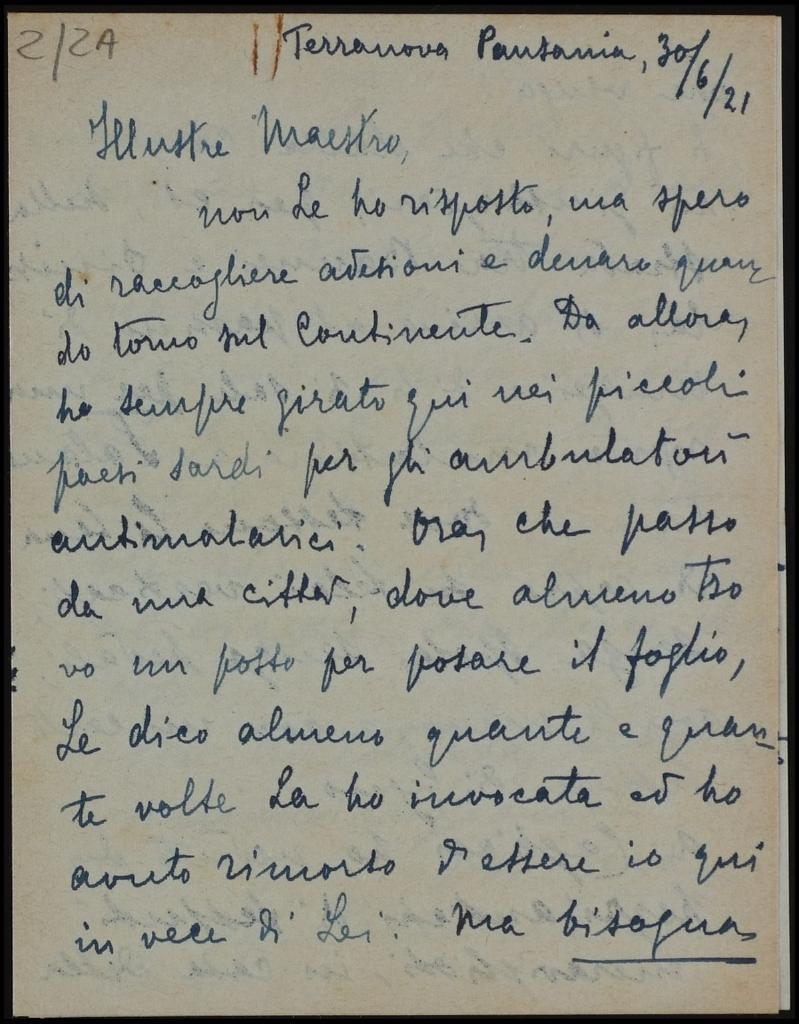 2/2A
Terranova Pausania, 30/6/21
Illustre Maestro,
non Le ho risposto, ma spero
di raccogliere adesioni e denaro quan-
do torno sul Continente. Da allora,
ho sempre girato qui nei piccoli
paesi sardi per gli ambulatorî
antimalarici. Ora, che passo
da una città, dove almeno tro
vo un posto per posare il foglio,
Le dico almeno quante e quan-
te volte La ho invocata ed ho
avuto rimorso d'essere io qui
in vece di Lei. Ma bisogna